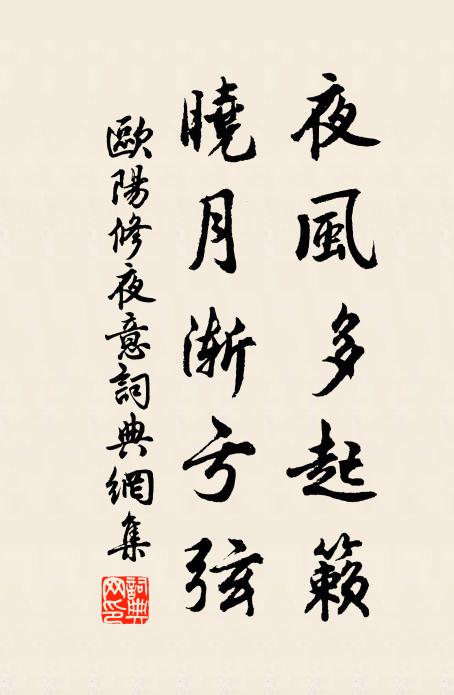 夜風多起籟
曉月漸亏弦
歐陽修夜意詞典網集
詞典网印